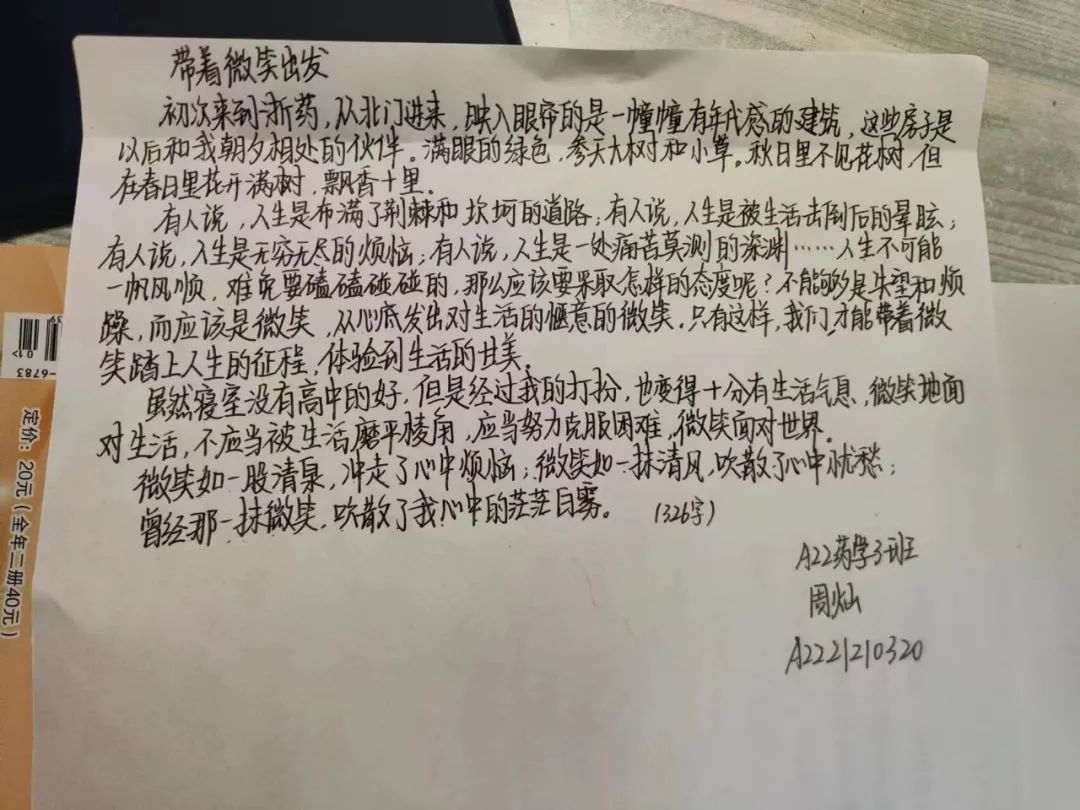 带着微笑出发
初次来到浙药，从北门进来，映入眼帘的是一幢幢有年代感的建筑，这些房子是
以后和我朝夕相处的伙伴。满眼的绿色，参天大树和小草。秋日里不见花树，但
在春日里花开满树，飘香十里。
有人说，人生是布满了荆棘和坎坷的道路；有人说，人生是被生活击倒后的晕眩；
有人说，人生是无穷无尽的烦恼；有人说，人生是一处痛苦莫测的深渊……人生不可能
一帆风顺，难免要磕磕碰碰的，那么应该要采取怎样的态度呢？不能够是失望和烦
躁，而应该是微笑，从心底发出对生活的惬意的微笑。只有这样，我们才能带着微
笑踏上人生的征程，体验到生活的甘美。
虽然寝室没有高中的好，但是经过我的打扮，也变得十分有生活气息，微笑地面
对生活，不应当被生活磨平棱角，应当努力克服困难，微笑面对世界。
微笑如一股清泉，冲走了心中烦恼；微笑如一抹清风，吹散了心中忧愁；
曾经那一抹微笑，吹散了我心中的茫茫白雾。（326字）
A22药学3班
周灿
A2221210320
定价：20元（全年二册40元）
01>
-6783